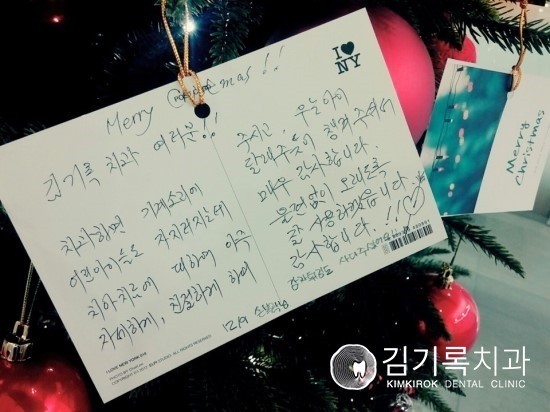 Merry mas!!
김기록 치과 여러분!!
치과하면 기계소리에
어린아이들은 자지러지는데
치아치료에 대하여 아주
자세하게, 친절하게 하여
12/9
주시고, 우는아이
달래주듯이 챙겨 주셔서
매우 감사합니다.
불편없이 오래도록
잘 사용하겠습니다.
감사합니다.!!
I ♥
NY
I LOVE NEW YORK
Merry
Christmas
김기록치과
KIMKIROK DENTAL CLINIC